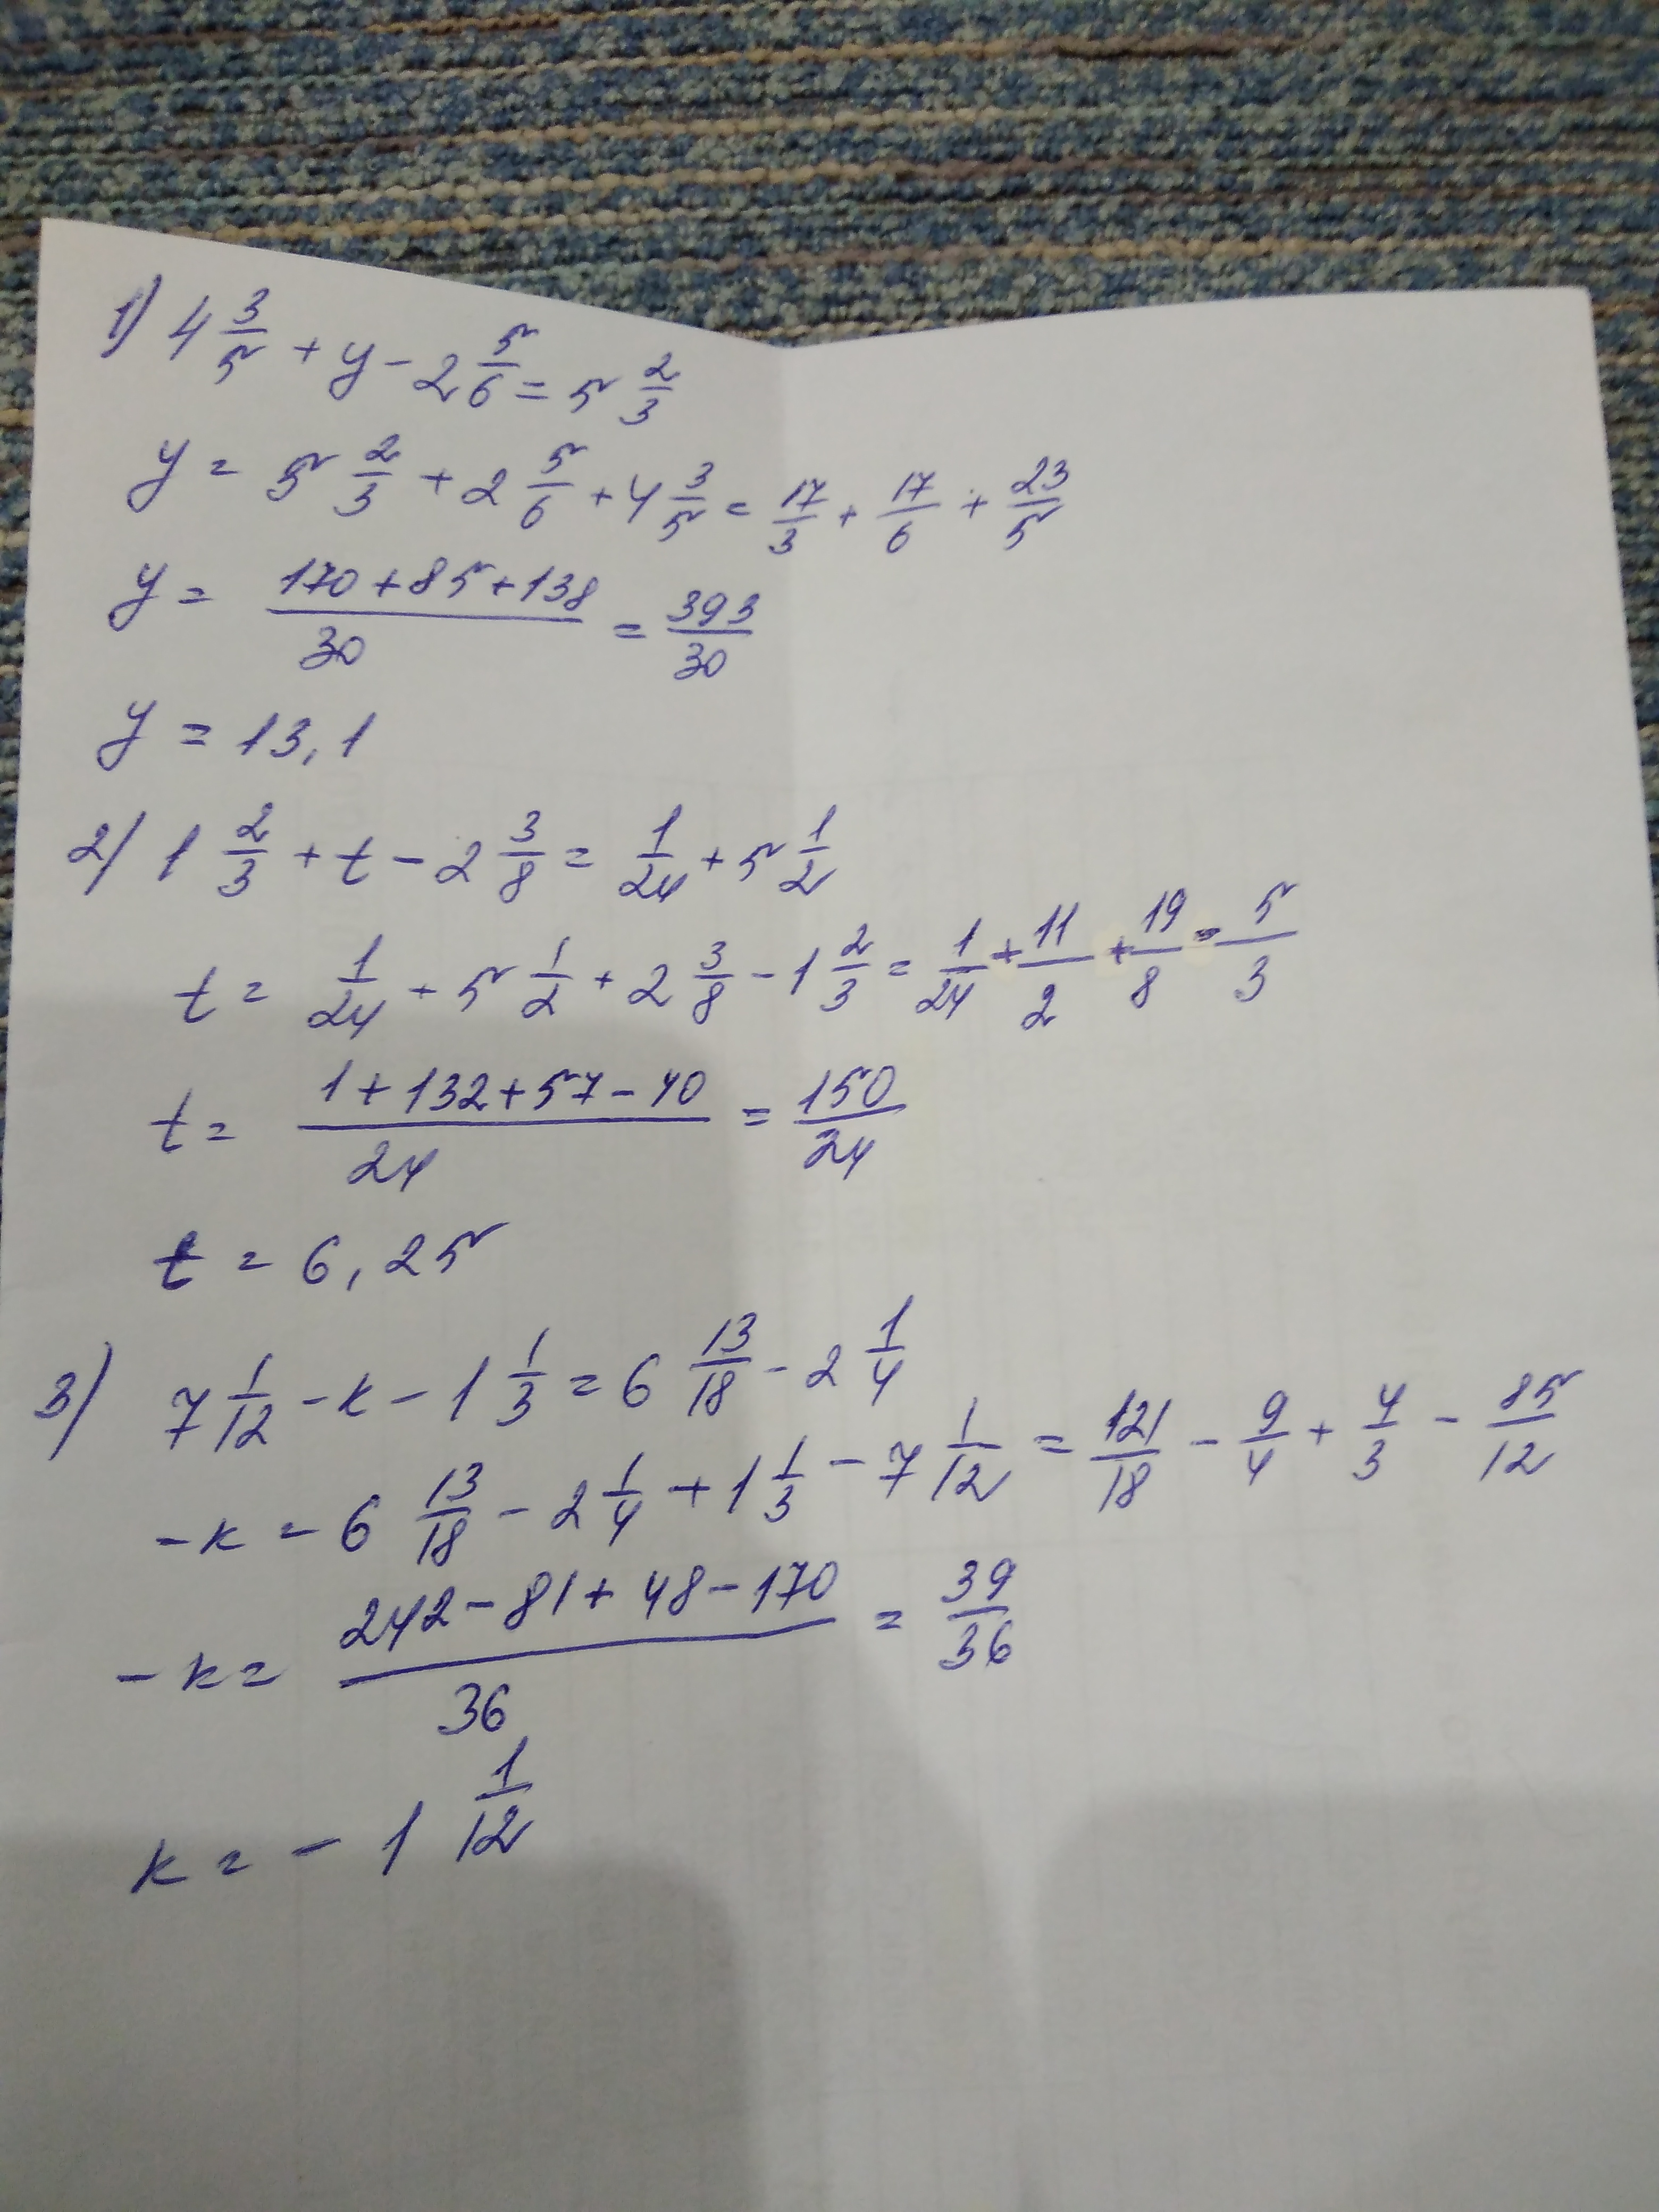 1) 4 3/5 + y - 2 5/6 = 5 2/3
y = 5 2/3 + 2 5/6 + 4 3/5 = 17/3 + 17/6 + 23/5
y = (170 + 85 + 138)/30 = 393/30
y = 13,1
2) 1 2/3 + t - 2 3/8 = 1/24 + 5 1/2
t = 1/24 + 5 1/2 + 2 3/8 - 1 2/3 = 1/24 + 11/2 + 19/8 - 5/3
t = (1 + 132 + 57 - 40)/24 = 150/24
t = 6,25
3) 7 1/12 - k - 1 1/3 = 6 13/18 - 2 1/4
-k = 6 13/18 - 2 1/4 + 1 1/3 - 7 1/12 = 121/18 - 9/4 + 4/3 - 85/12
-k = (242 - 81 + 48 - 170)/36 = 39/36
k = - 1 1/12